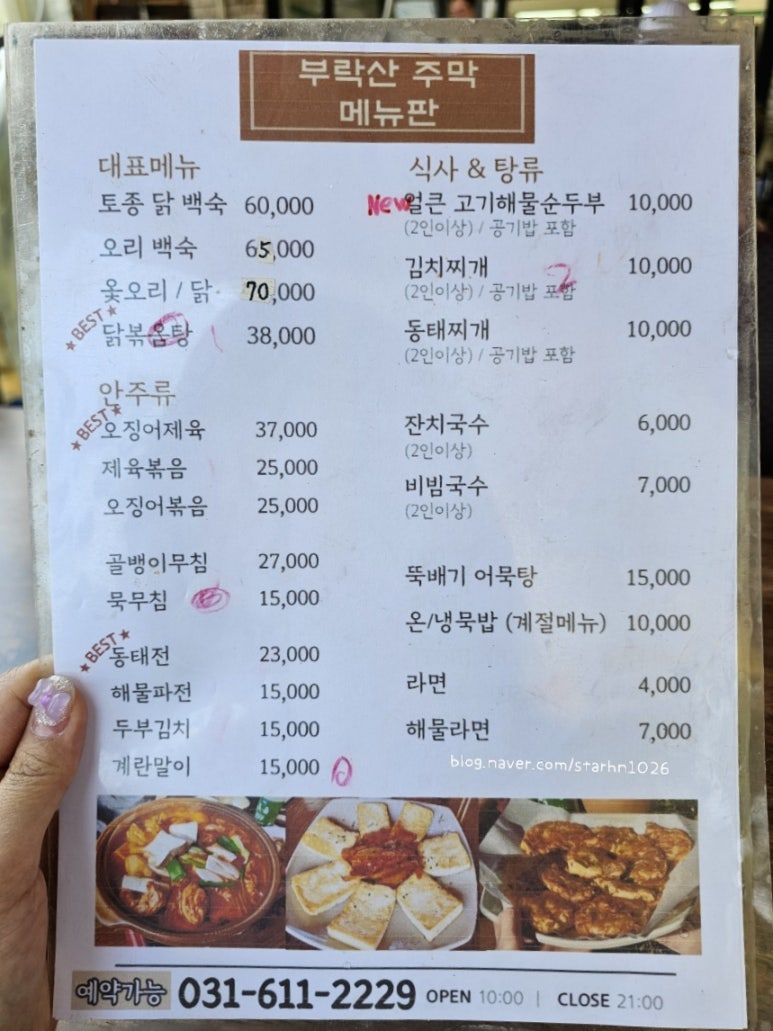 부락산 주막
메뉴판
대표메뉴
토종 닭 백숙 60,000
오리 백숙 65,000
옻오리 / 닭 70,000
★BEST★
닭볶음탕 38,000
안주류
★BEST★
오징어제육 37,000
제육볶음 25,000
오징어볶음 25,000
골뱅이무침 27,000
묵무침 15,000
★BEST★
동태전 23,000
해물파전 15,000
두부김치 15,000
계란말이 15,000
식사 & 탕류
New 얼큰 고기해물순두부 10,000
(2인이상) / 공기밥 포함
김치찌개 10,000
(2인이상) / 공기밥 포함
2
동태찌개 10,000
(2인이상) / 공기밥 포함
잔치국수 6,000
(2인이상)
비빔국수 7,000
(2인이상)
뚝배기 어묵탕 15,000
온/냉묵밥 (계절메뉴) 10,000
라면 4,000
해물라면 7,000
blog.naver.com/starhn1026
예약가능 031-611-2229 OPEN 10:00 | CLOSE 21:00